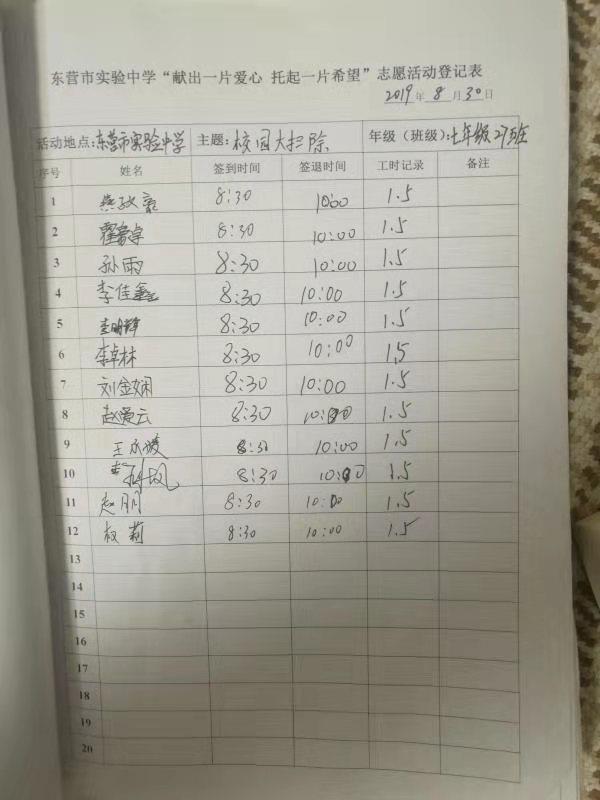 东营市实验中学“献出一片爱心 托起一片希望”志愿活动登记表
2019年 8月 30日
活动地点:东营市实验中学 主题:校园大扫除 年级（班级）:七年级27班
序号 姓名 签到时间 签退时间 工时记录 备注
1 8:30 10:00 1.5
2 8:30 10:00 1.5
3 孙雨 8:30 10:00 1.5
4 李佳鑫 8:30 10:00 1.5
5 8:30 10:00 1.5
6 李卓林 8:30 10:00 1.5
7 刘金娴 8:30 10:00 1.5
8 赵爱云 8:30 10:00 1.5
9 8:30 10:00 1.5
10 8:30 10:00 1.5
11 赵明 8:30 10:00 1.5
12 权莉 8:30 10:00 1.5
13
14
15
16
17
18
19
20